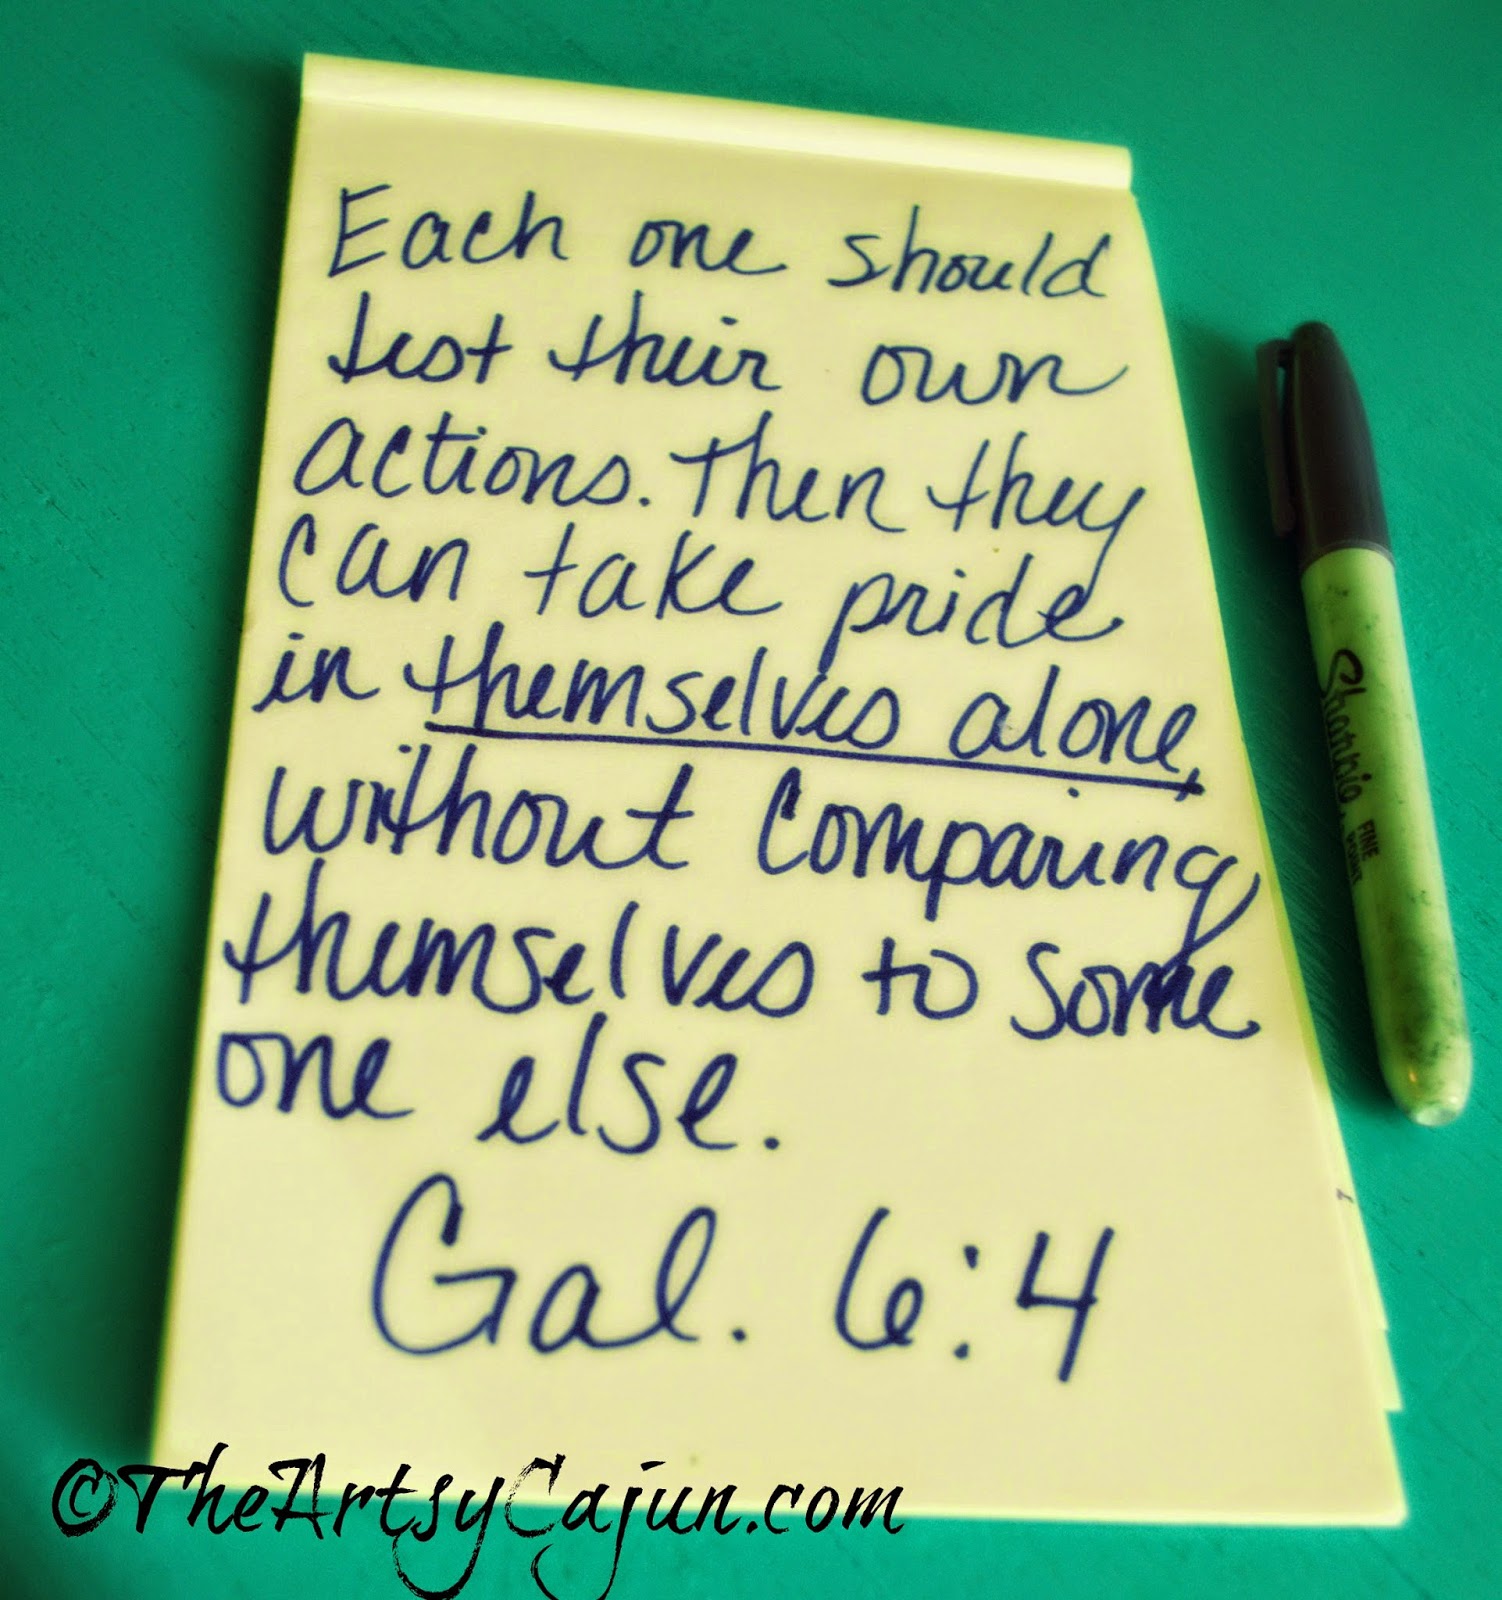 Each one should
test their own
actions. Then they
can take pride
in themselves alone,
without comparing
themselves to some
one else.
Gal. 6:4
Sharpie
FINE
POINT
©TheArtsyCajun.com